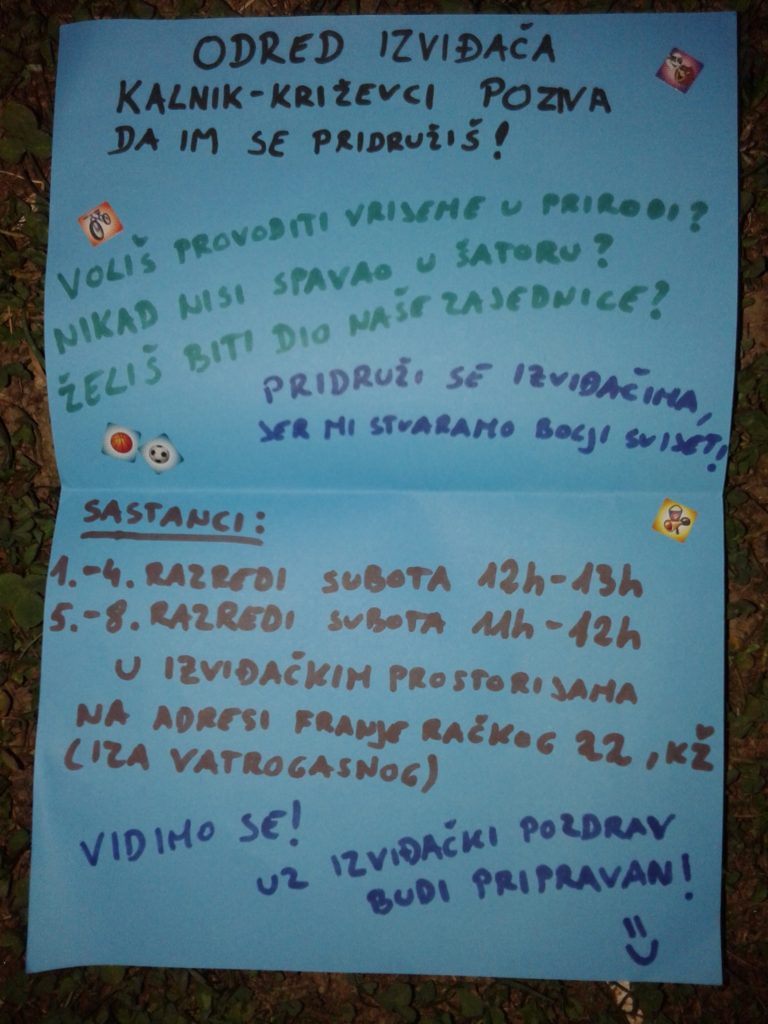 ODRED IZVIĐAČA
KALNIK-KRIŽEVCI POZIVA
DA IM SE PRIDRUŽIŠ!
VOLIŠ PROVODITI VRIJEME U PRIRODI?
NIKAD NISI SPAVAO U ŠATORU?
ŽELIŠ BITI DIO NAŠE ZAJEDNICE?
PRIDRUŽI SE IZVIĐAČIMA,
JER MI STVARAMO BOLJI SVIJET!
SASTANCI:
1.-4. RAZREDI SUBOTA 12h-13h
5.-8. RAZREDI SUBOTA 11h-12h
U IZVIĐAČKIM PROSTORIJAMA
NA ADRESI FRANJE RAČKOG 22, KŽ
(IZA VATROGASNOG)
VIDIMO SE!
UZ IZVIĐAČKI POZDRAV
BUDI PRIPRAVAN!